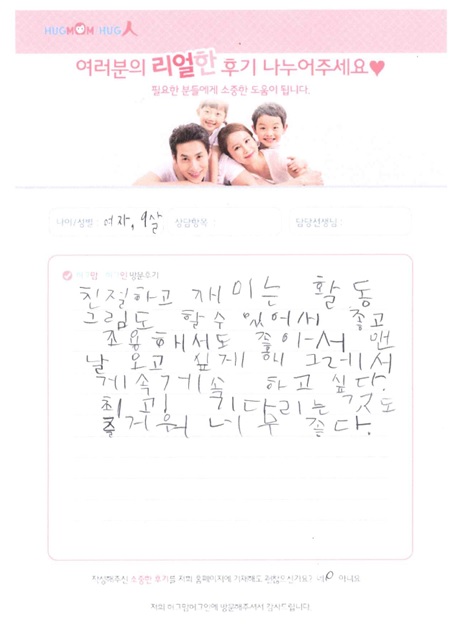 HUGMOM HUG人
여러분의 리얼한 후기 나누어주세요♥
필요한 분들에게 소중한 도움이 됩니다.
나이/성별 : 여자, 9살 상담항목 : 담당선생님 :
허그맘 허그인 방문후기
친절하고 재미는 활동
그림도 할수 있어서 좋고
조용해서도 좋아서 맨
날 오고 싶게 해 그레서
게속게속 하고 싶다.
최고! 기다리는 것도
즐거워 너무 좋다.
작성해주신 소중한 후기를 저희 홈페이지에 기재해도 괜찮으신가요? 네 아니요
저희 허그맘허그인에 방문해주셔서 감사드립니다.